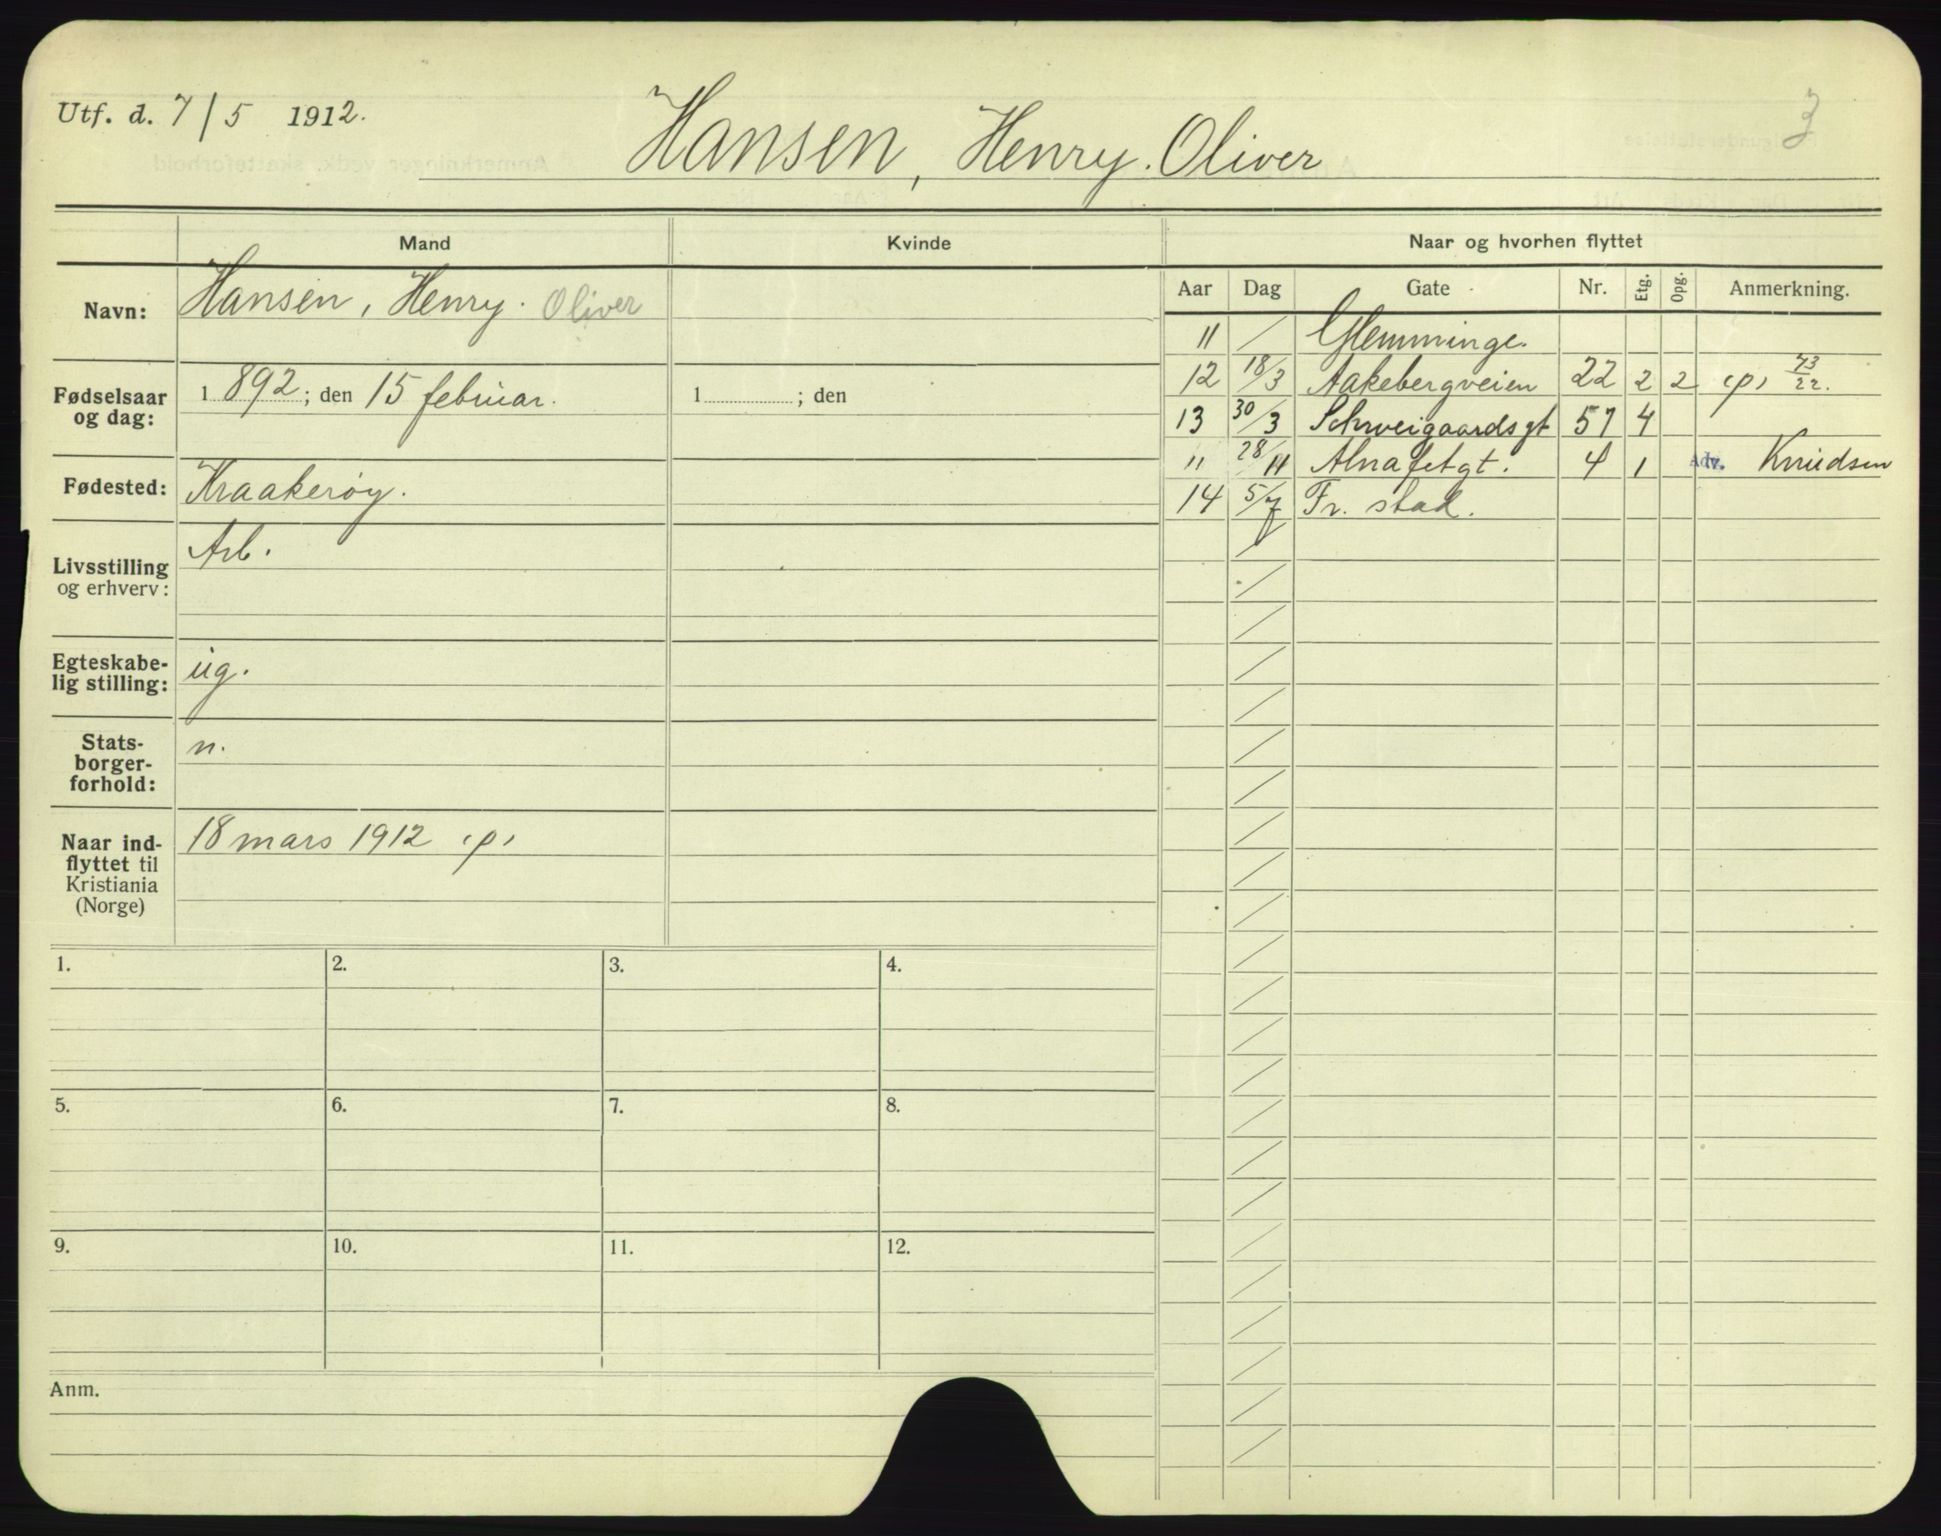 Utf. d. 7/5 1912.
Hansen, Henry. Oliver
3
Mand
Kvinde
Naar og hvorhen flyttet
Aar Dag Gate Nr. Etg. Opg. Anmerkning.
Navn: Hansen, Henry. Oliver
Fødselsaar og dag: 1892; den 15 februar.
1 ; den
Fødested: Kraakerøy.
Livsstilling og erhverv: Arb.
Egteskabe-
lig stilling: ug.
Stats-
borger-
forhold: n.
Naar ind-
flyttet til
Kristiania
(Norge) 18 mars 1912 (p)
11 / Glemminge.
12 18/3 Aakebergveien 22 2 2 (p) 73/22.
13 30/3 Schweigaardsgt 57 4
" 28/11 Alnafetgt. 4 1 Adv. Knudsen
14 5/7 Fr. stad.
1. 2. 3. 4.
5. 6. 7. 8.
9. 10. 11. 12.
Anm.